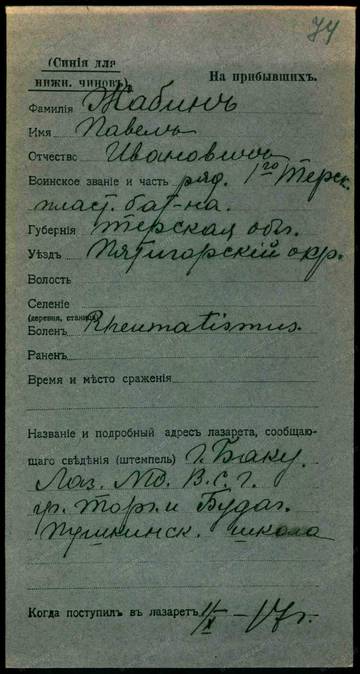 74
(Синія для
нижн. чиновъ)
На прибывшихъ.
Фамилія Жабинъ
Имя Павелъ
Отчество Ивановичъ
Воинское званіе и часть ряд. 1го Терск.
пласт. бат-на.
Губернія Терская обл.
Уѣздъ Пятигорскій окр.
Волость
Селеніе
(деревня, станица)
Боленъ Rheumatismus.
Раненъ
Время и мѣсто сраженія
Названіе и подробный адресъ лазарета, сообщаю-
щаго свѣдѣнія (штемпель) г. Баку.
Лаз. В. С. Г.
Торг. и Будаг.
Пушкинск. школа
Когда поступилъ въ лазаретъ 11/X - 17 г.